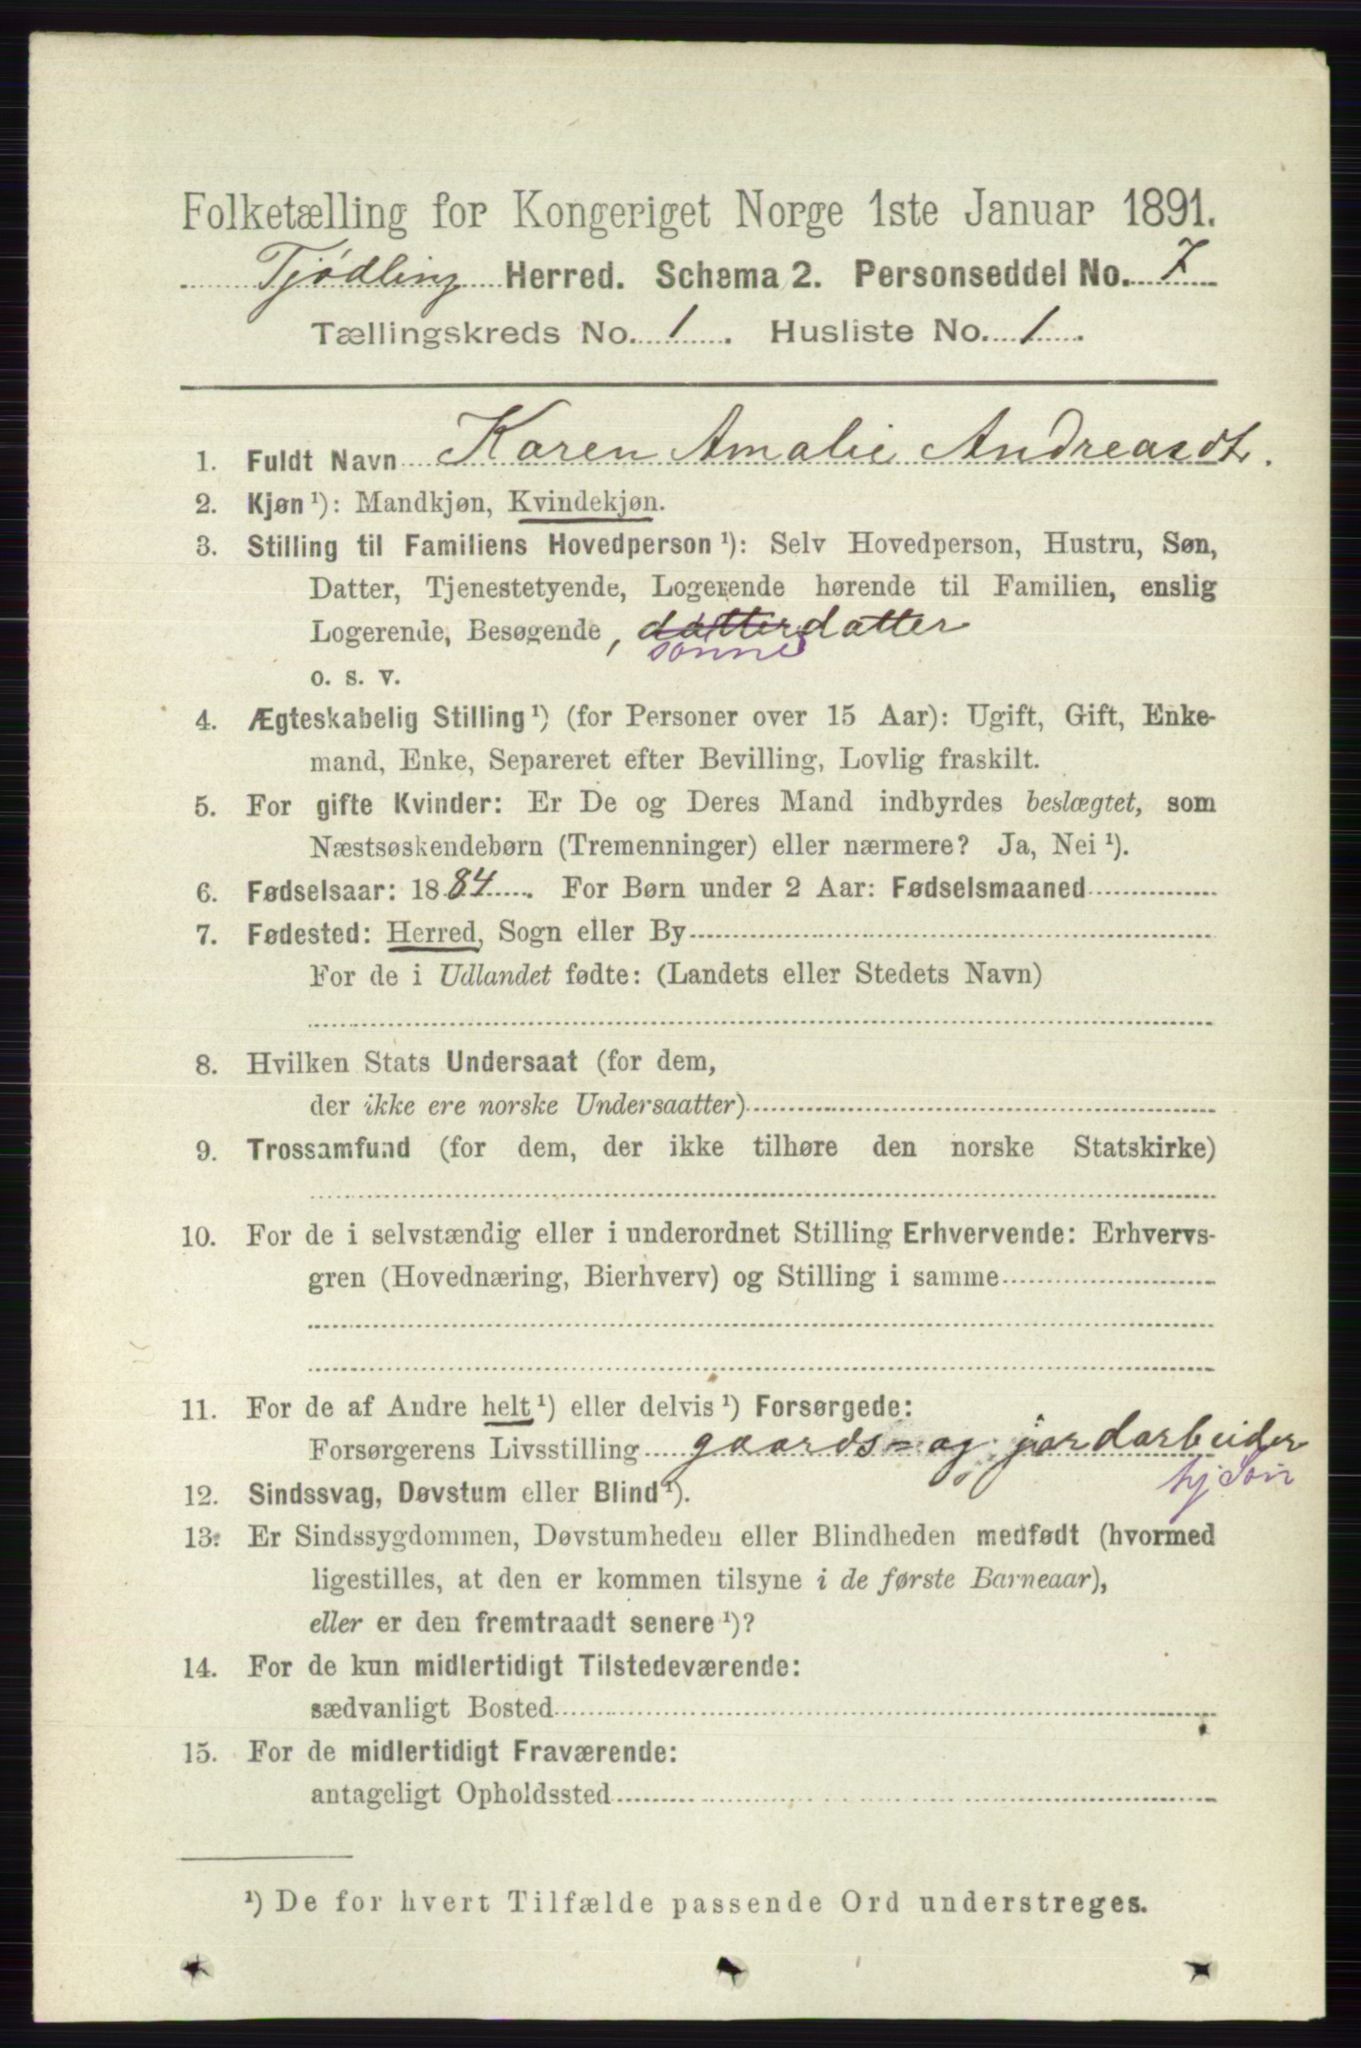 Folketælling for Kongeriget Norge 1ste Januar 1891.
Tjødling Herred. Schema 2. Personseddel No. 7
Tællingskreds No. 1. Husliste No. 1.
1. Fuldt Navn Karen Amalie Andreasdt.
2. Kjøn ¹): Mandkjøn, Kvindekjøn.
3. Stilling til Familiens Hovedperson ¹): Selv Hovedperson, Hustru, Søn,
Datter, Tjenestetyende, Logerende hørende til Familien, enslig
Logerende, Besøgende, datterdatter
sønne
o. s. v.
4. Ægteskabelig Stilling ¹) (for Personer over 15 Aar): Ugift, Gift, Enke-
mand, Enke, Separeret efter Bevilling, Lovlig fraskilt.
5. For gifte Kvinder: Er De og Deres Mand indbyrdes beslægtet, som
Næstsøskendebørn (Tremenninger) eller nærmere? Ja, Nei ¹).
6. Fødselsaar: 1884. For Børn under 2 Aar: Fødselsmaaned
7. Fødested: Herred, Sogn eller By
For de i Udlandet fødte: (Landets eller Stedets Navn)
8. Hvilken Stats Undersaat (for dem,
der ikke ere norske Undersaatter)
9. Trossamfund (for dem, der ikke tilhøre den norske Statskirke)
10. For de i selvstændig eller i underordnet Stilling Erhvervende: Erhvervs-
gren (Hovednæring, Bierhverv) og Stilling i samme
11. For de af Andre helt ¹) eller delvis ¹) Forsørgede:
Forsørgerens Livsstilling gaards- og jordarbeider
12. Sindssvag, Døvstum eller Blind ¹).
13. Er Sindssygdommen, Døvstumheden eller Blindheden medfødt (hvormed
ligestilles, at den er kommen tilsyne i de første Barneaar),
eller er den fremtraadt senere ¹)?
14. For de kun midlertidigt Tilstedeværende:
sædvanligt Bosted
15. For de midlertidigt Fraværende:
antageligt Opholdssted
¹) De for hvert Tilfælde passende Ord understreges.